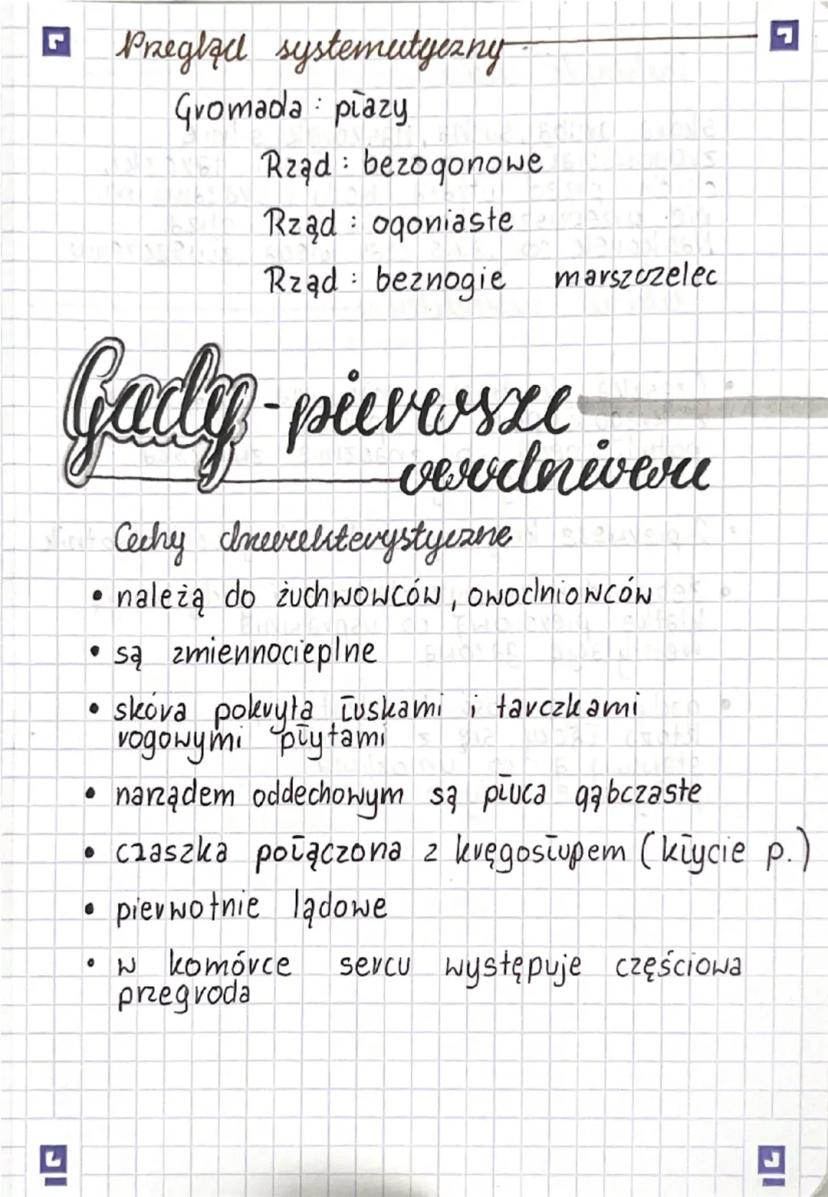 Przegląd systematyczny
Gromada : płazy
Rząd : bezogonowe
Rząd : ogoniaste
Rząd : beznogie marszczelec
Gady - pierwsze
owodniowce
Cechy charakterystyczne
• należą do żuchwowców, owodniowców
• są zmiennocieplne
• skóra pokryta łuskami i tarczkami
rogowymi płytami
• narządem oddechowym są płuca gąbczaste
• czaszka połączona z kręgosłupem (kłycie p.)
• pierwotnie lądowe
• w komórce sercu występuje częściowa
przegroda